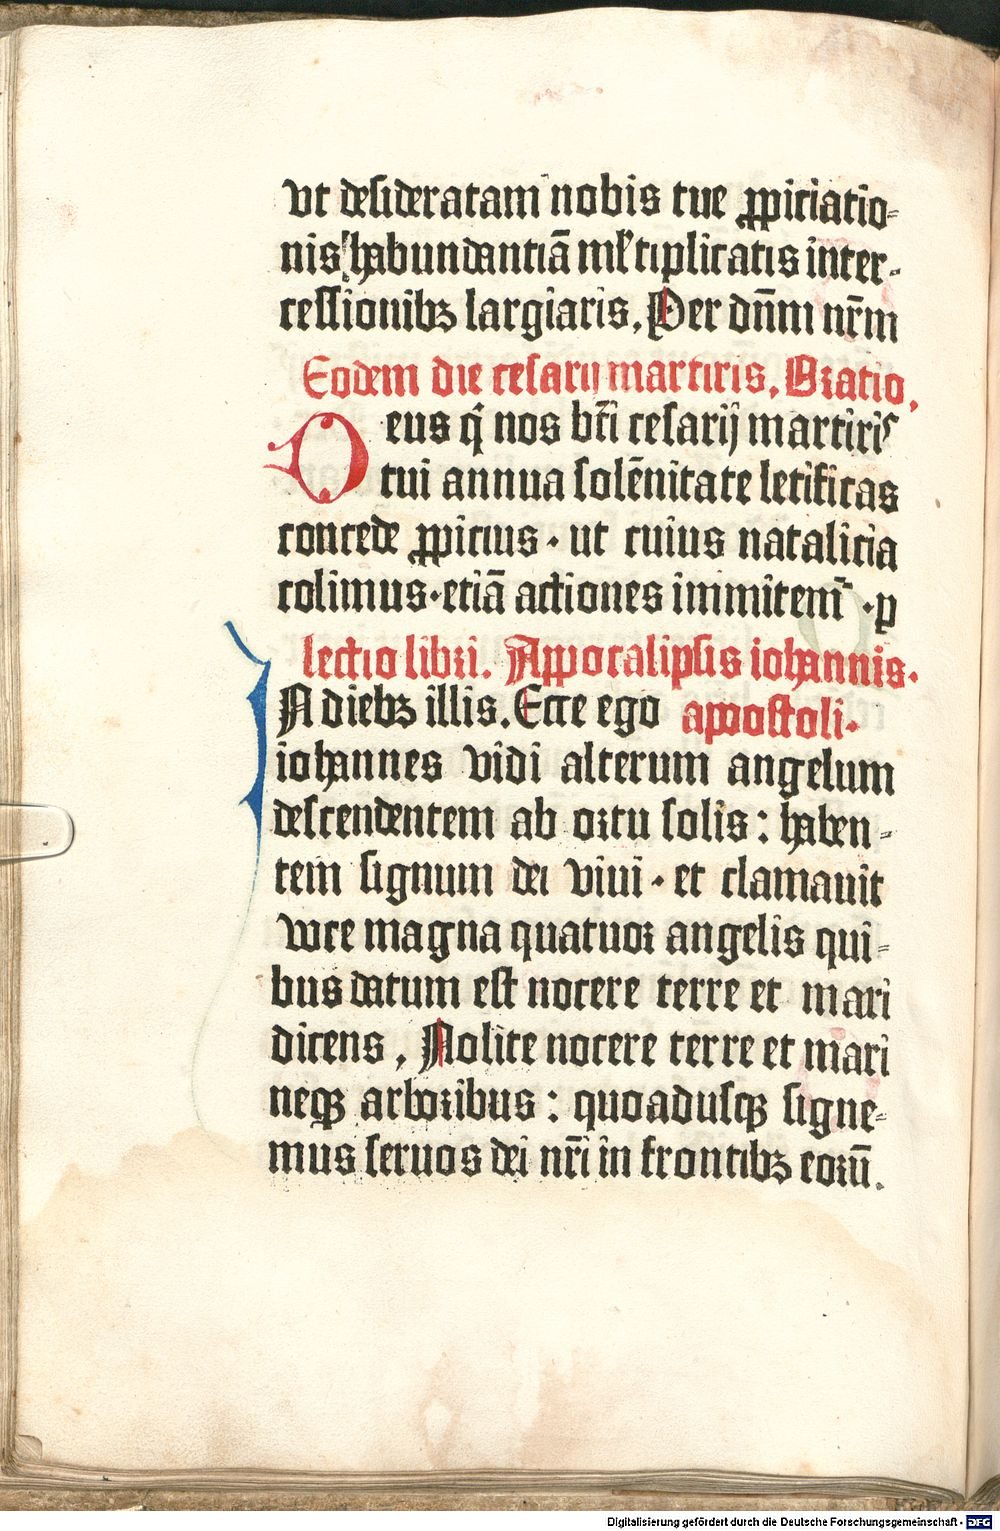 vt desideratam nobis tue ꝓpiciatio⸗
nis habundantiā ml̓tiplicatis inter⸗
cessionibꝫ largiaris. Per dn̄m nr̄m
Eodem die cesarij martiris. Oratio.
Deus q̄ nos bt̄i cesarij martiris
tui annua solēnitate letificas
concede ꝓpicius · ut cuius natalicia
colimus · etiā actiones immitem̄ · p
lectio libri. Appocalipsis iohannis.
IN diebꝫ illis. Ecce ego apostoli.
iohannes vidi alterum angelum
descendentem ab ortu solis : haben⸗
tem signum dei viui · et clamauit
voce magna quatuor angelis qui⸗
bus datum est nocere terre et mari
dicens, Nolite nocere terre et mari
neqꝫ arboribus : quoadusqꝫ signe⸗
mus seruos dei nr̄i in frontibꝫ eorū.
Digitalisierung gefördert durch die Deutsche Forschungsgemeinschaft - DFG